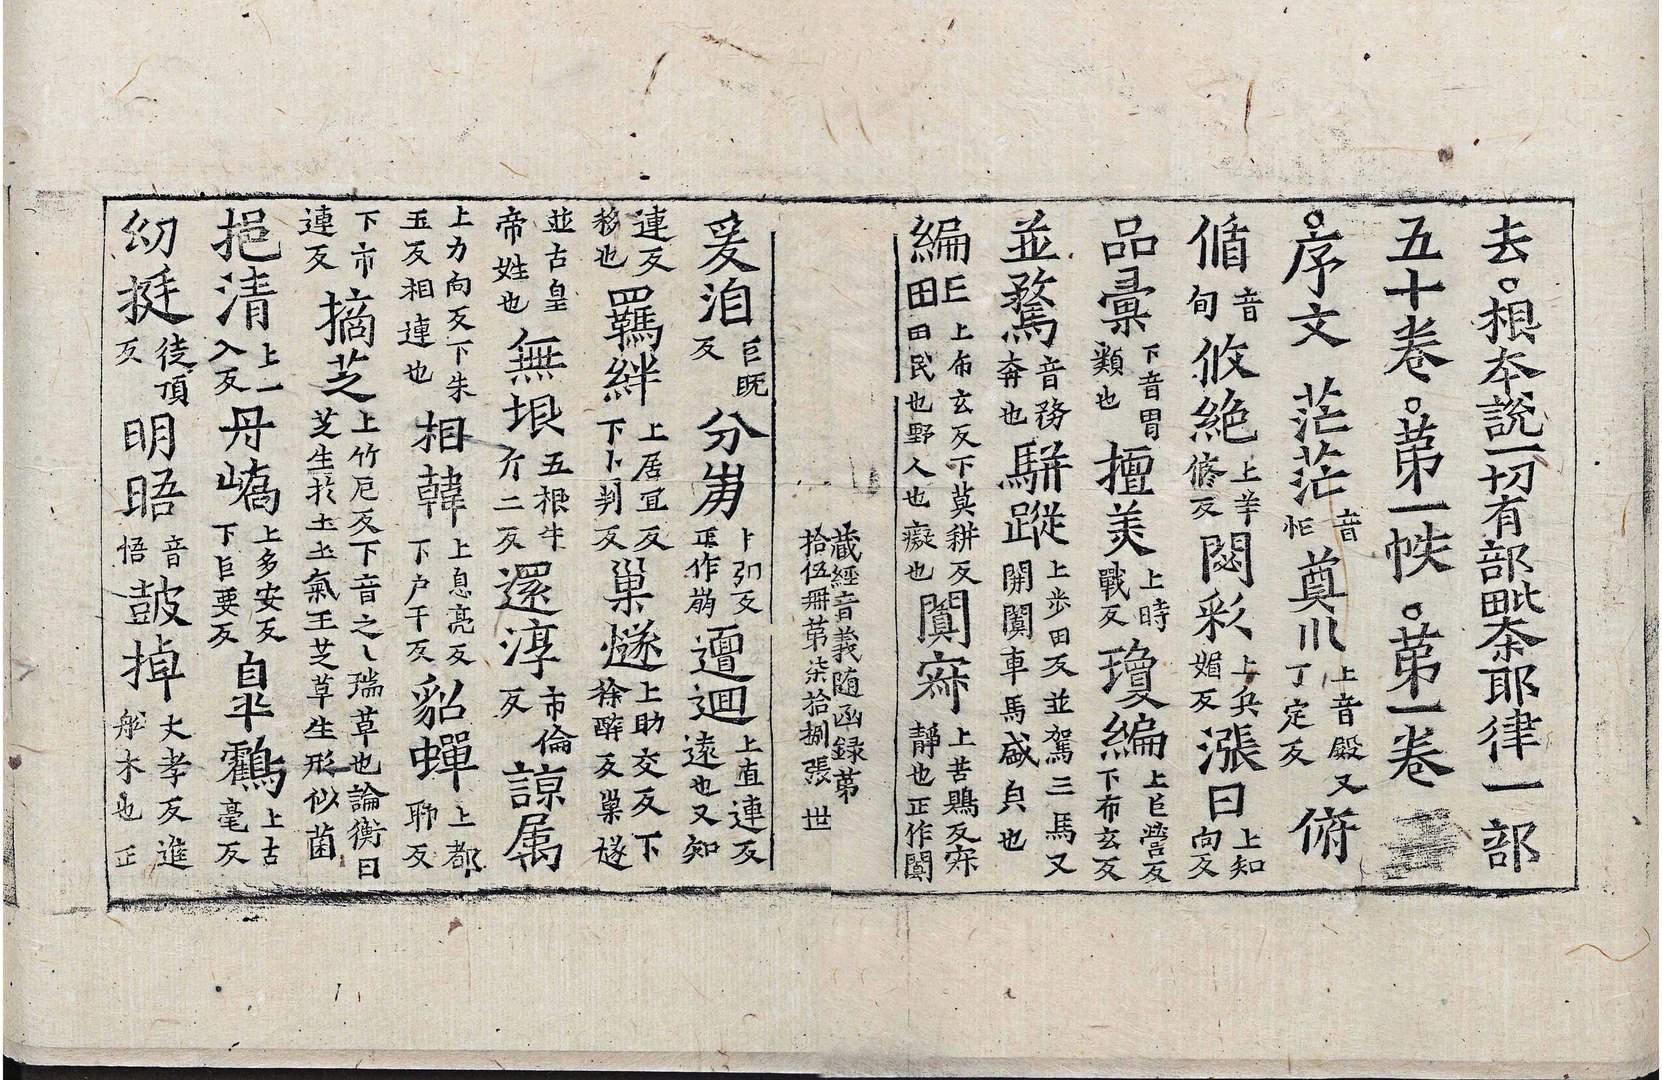 去。根本說一切有部毗奈耶律一部
五十卷。第一帙。第一卷
。序文 茫茫音恾奠川上音殿又丁定反俯
循音旬攸絶上羊修反閟彩上兵媚反漲日上知向反
品彚下音胃類也擅美上時戰反瓊編上巨營反下布玄反
並騖音務奔也駢蹤上步田反並駕三馬又開闐車馬盛皃也
編甿上布玄反下莫耕反田民也野人也癡也闃寂上苦鶪反寂靜也正作闃
藏經音義随函録第拾伍冊第柒拾捌張 世
爰洎巨既反分崩卜仍反正作崩邅迴上直連反遠也又知
連反移也羈絆上居宜反下卜判反巢燧上助交反下徐醉反巢燧
並古皇帝姓也無垠五根牛斤二反還淳市倫反諒属
上力向反下朱玉反相連也相韓上息亮反下户干反貂蟬上都聊反
下市連反摘芝上竹厄反下音之瑞草也論衡曰芝生於土土氣王芝草生形似菌
挹清上一入反丹嶠上多安反下巨要反皐鸖上古毫反
幼挺徒頂反明晤音悟鼓棹丈孝反進船木也正